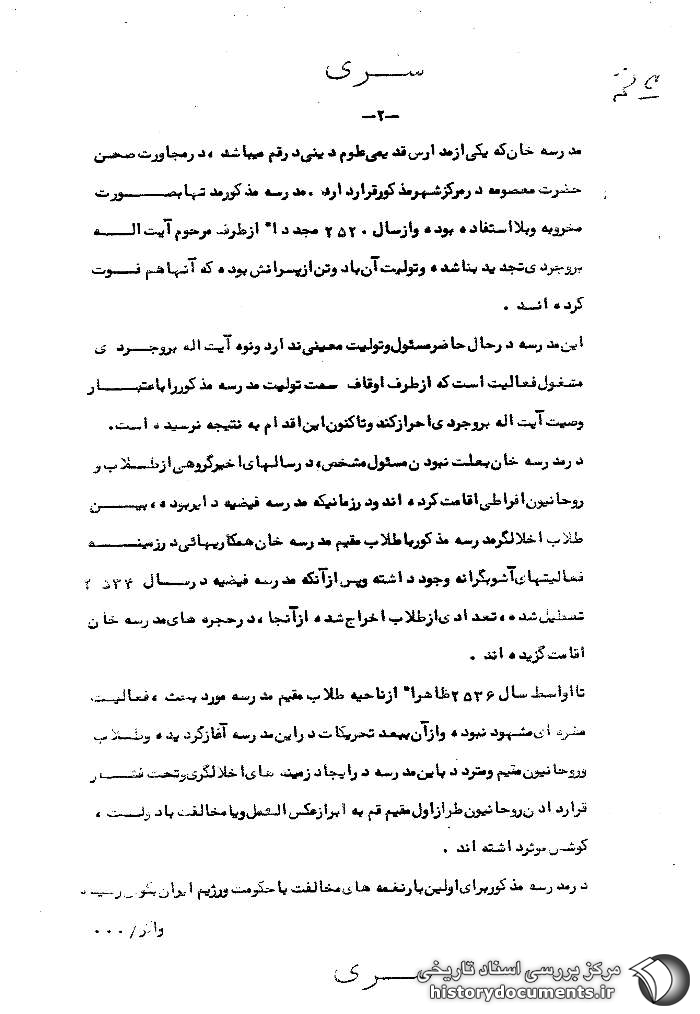 سری
قم
-۲-
مدرسه خان که یکی از مدارس قدیمی علوم دینی در قم میباشد ، در مجاورت صحن
حضرت معصومه در مرکز شهر مذکور قرار دارد . مدرسه مذکور مدتها بصورت
مخروبه وبلا استفاده بوده و از سال ۲۵۲۰ مجددا" از طرف مرحوم آیت اله
بروجردی تجدید بنا شده و تولیت آن با دو تن از پسرانش بوده که آنها هم فوت
کرده اند .
این مدرسه در حال حاضر مسئول و تولیت معینی ندارد و نوه آیت اله بروجردی
مشغول فعالیت است که از طرف اوقاف سمت تولیت مدرسه مذکور را با عتبار
وصیت آیت اله بروجردی احراز کند و تاکنون این اقدام به نتیجه نرسیده است .
در مدرسه خان بعلت نبودن مسئول مشخص ، در سالهای اخیر گروهی از طلاب و
روحانیون افراطی اقامت کرده اند و در زمانیکه مدرسه فیضیه دایر بوده ، بین
طلاب اخلالگر مدرسه مذکور با طلاب مقیم مدرسه خان همکاریهائی در زمینه
فعالیتهای آشوبگرانه وجود داشته و پس از آنکه مدرسه فیضیه در سال ۲۵۳۴
تعطیل شده ، تعدادی از طلاب اخراج شده از آنجا ، در حجره های مدرسه خان
اقامت گزیده اند .
تا اواسط سال ۲۵۳۶ ظاهرا" از ناحیه طلاب مقیم مدرسه مورد بحث ، فعالیت
مضره ای مشهود نبوده و از آن ببعد تحریکات در این مدرسه آغاز گردیده و طلاب
و روحانیون مقیم و متردد باین مدرسه در ایجاد زمینه های اخلالگری و تحت فشار
قرار دادن روحانیون طراز اول مقیم قم به ابراز عکس العمل و یا مخالفت با دولت ،
کوشش موثر داشته اند .
در مدرسه مذکور برای اولین بار نغمه های مخالفت با حکومت و رژیم ایران بگوش رسیده
و از / ۰۰۰
سری
مرکز بررسی اسناد تاریخی
historydocuments.ir